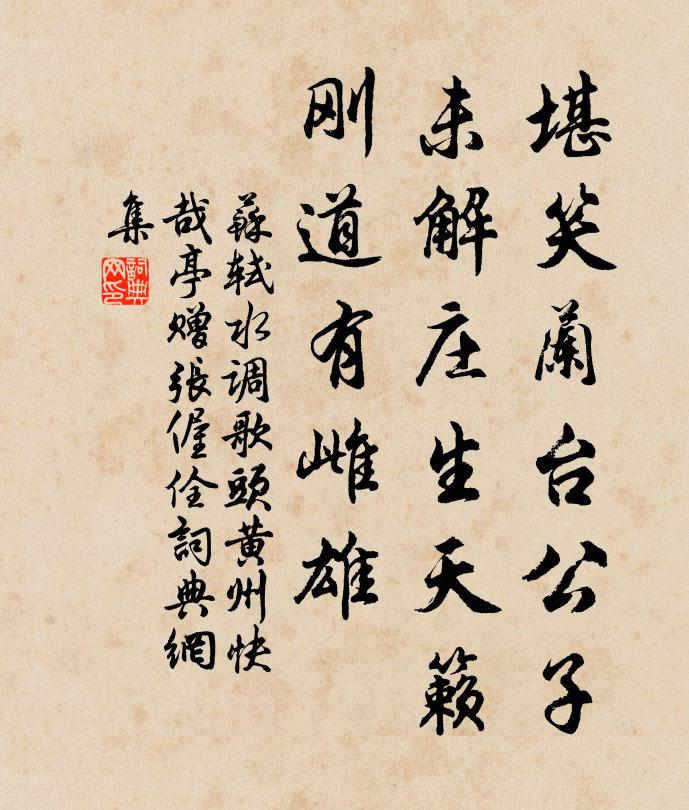 堪笑蘭台公子
未解庄生天籟
刚道有雌雄
蘇轼水调歌頭黄州快
哉亭赠張偓佺詞典網
集
詞典
网印